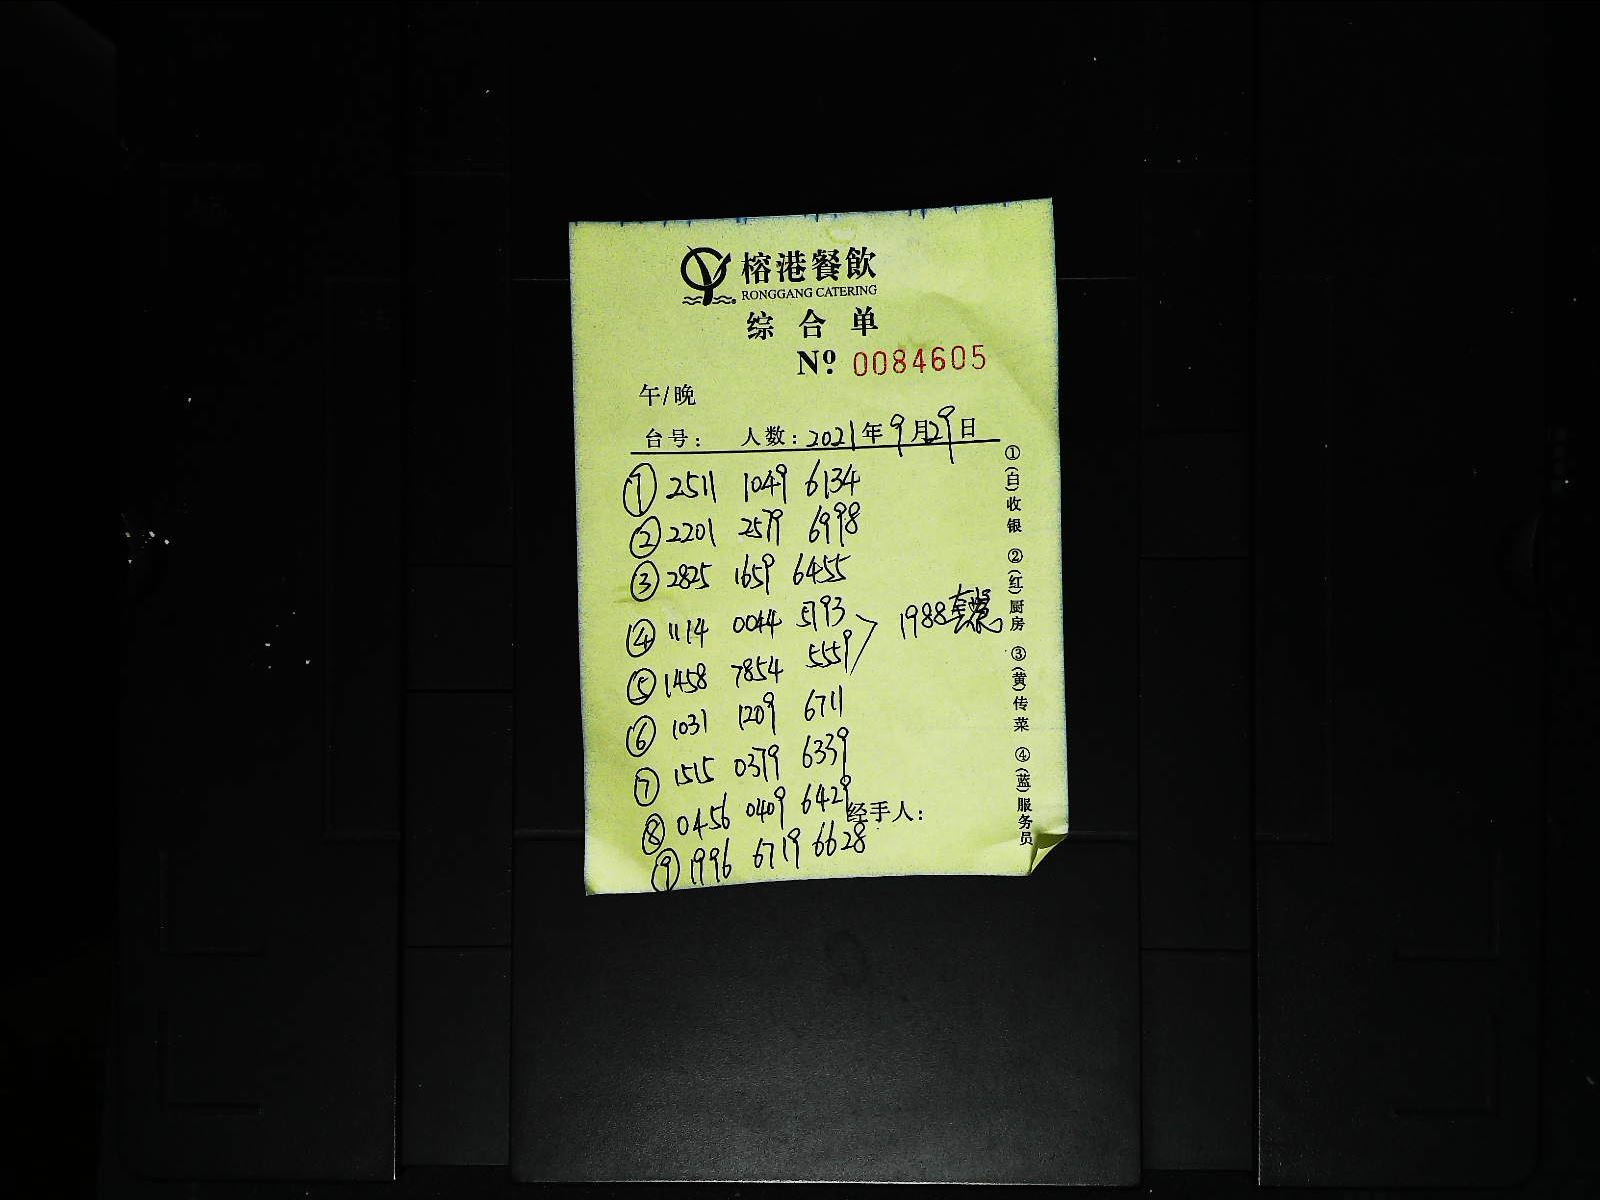 榕港餐飲
RONGGANG CATERING
综合单
Nº 0084605
午/晚
台号: 人数: 2021年9月29日
① 2511 1049 6134
② 2201 2579 6998
③ 2825 1659 6455
④ 1114 0044 5793
⑤ 1458 7854 5559
1988套餐
⑥ 1031 1209 6711
⑦ 1515 0379 6339
⑧ 0456 0409 6429
经手人:
⑨ 1996 6719 6628
①(白)收银 ②(红)厨房 ③(黄)传菜 ④(蓝)服务员